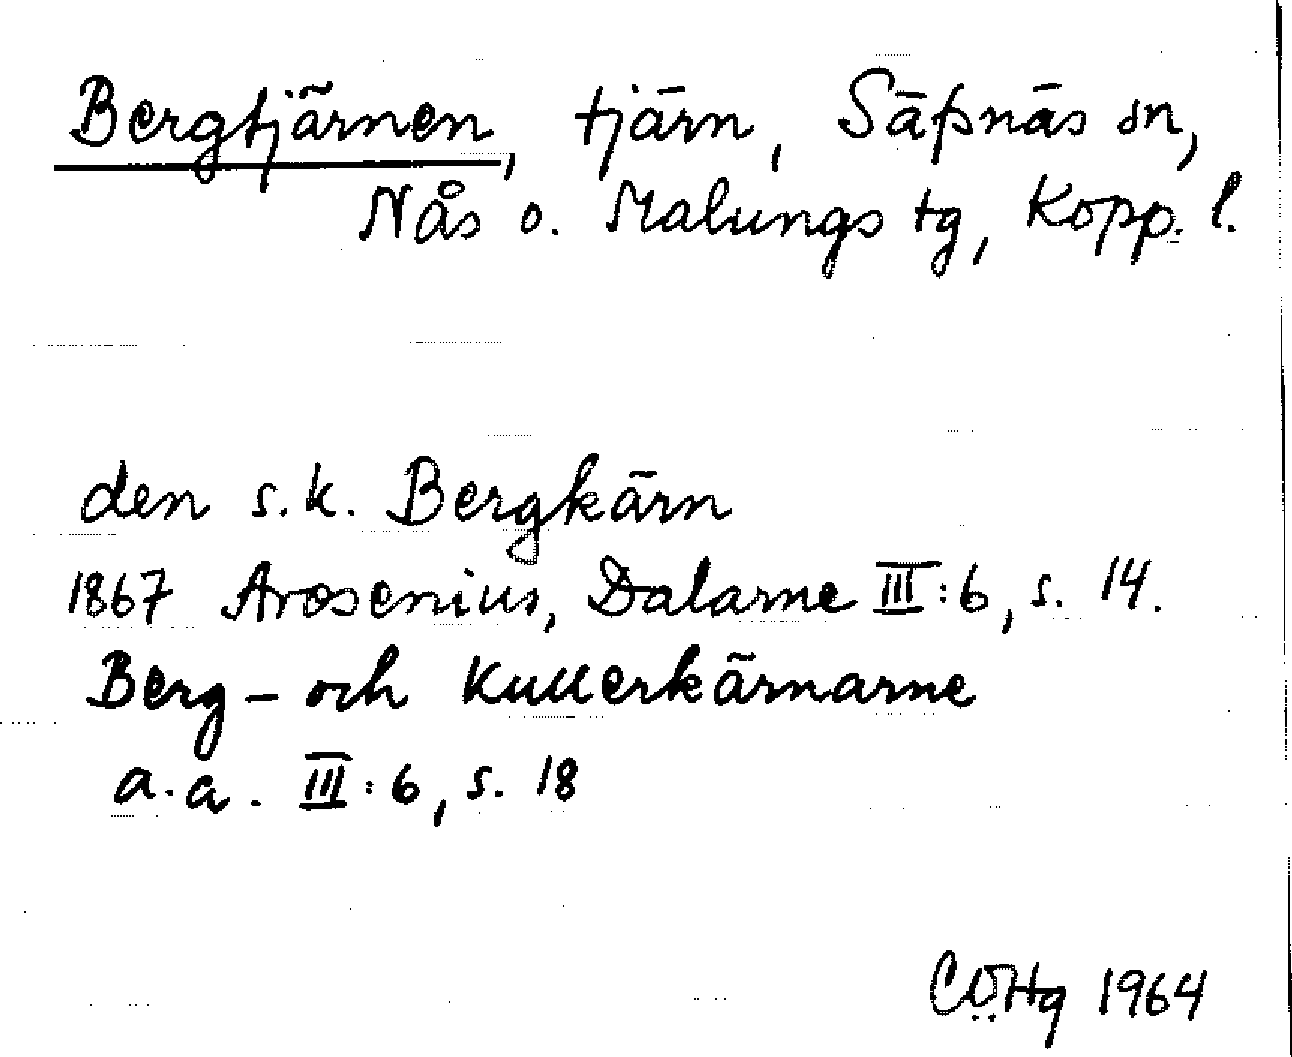 Bergtjärnen, tjärn, Säfsnäs sn,
Nås o. Malungs tg, Kopp. l.
den s.k. Bergkärn
1867 Arosenius, Dalarne III:6, s. 14.
Berg- och Kullerkärnarne
a.a. III:6, s. 18
1964